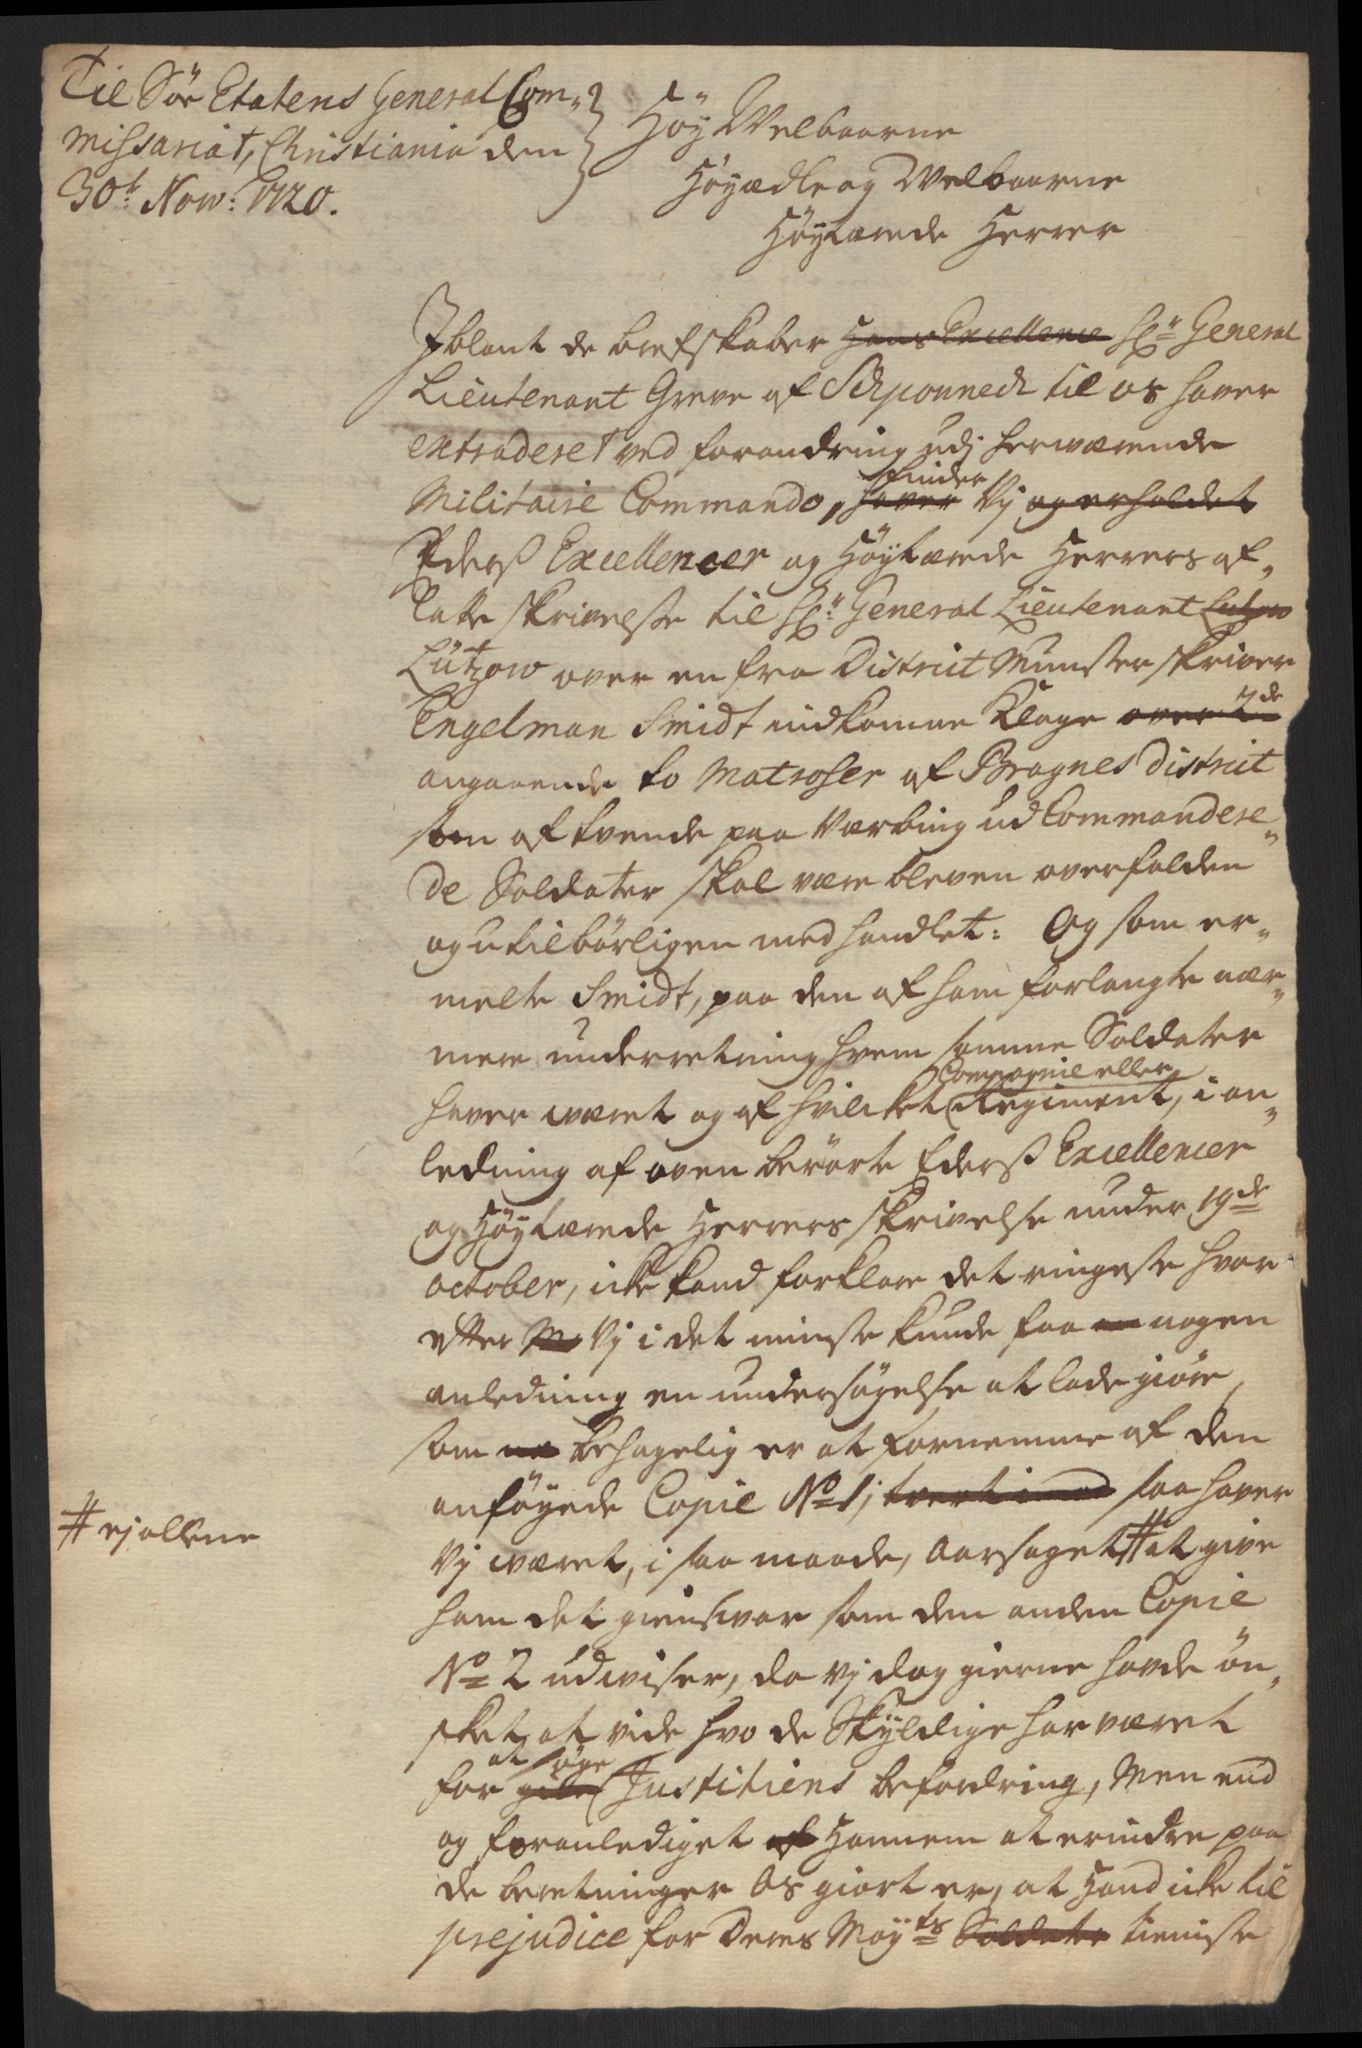 Til Söe Etatens General Com-
missariat, Christiania den
30t Nov: 1720.
Höy Welbaarne
Höyædle og Welbaarne
Höytærede Herrer
Iblant de brefskaber Hans Excellence Hr General
Lieutenant Greve af Sponneck til os haver
extraderet ved forandring udj herwærende
Militaire Commando, haver finder Vj og erholdet
Eders Excellencer og Höytærede Herrers af-
latte skrivelse til Hr: General Lieutenant Lutzow
Lützow over en fra District Munsterskriver
Engelman Smidt indkomne Klage over 2de
angaaende to Matroser af Bragnes District
som af tvende paa Værbing ud Commandere-
de Soldater skal være bleven overfalden
og utilbörligen medhandlet: Og som er-
melte Smidt, paa den af ham forlangte nær-
mere underretning hvem samme Soldater
haver wæret og af hvilcket Compagnie eller Regiment, i an-
ledning af oven berörte Eders Excellencer
og Höytærede Herrers skrivelse under 19de
october, icke kand forklare det ringeste hvor
efter Vj i det minste kunde faa nogen
anledning en undersögelse at lade giöre,
som behagelig er at fornemme af den
anföyede Copie No 1; tvert imod saa haver
Vj wæret, i saa maade, aarsaget # at give
# ej allene
ham det giensvar som den anden Copie
No 2 udwiser, da Vj dog gierne havde ön-
sket at vide hvo de Skyldige har været
for at söge Justitiens befordring, Men end
og foranlediget af Hannem at erindre paa
de beretninger Os giort er, at Hand icke til
prejudice for Deres Mayts Soldate tieniste